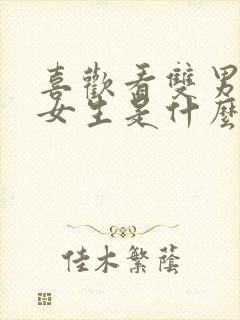 喜歡看雙男
女生是什麼
佳木繁蔭